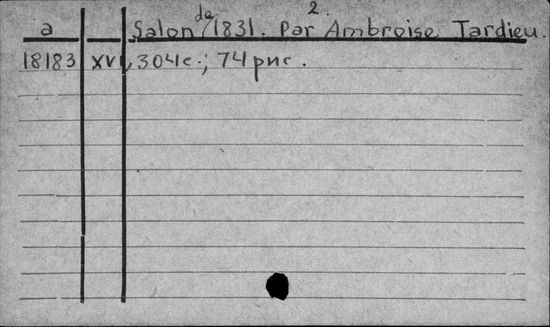 2.
a Salon de 1831. Par Ambroise Tardieu.
18183 XVI, 304 с.; 74 рис.